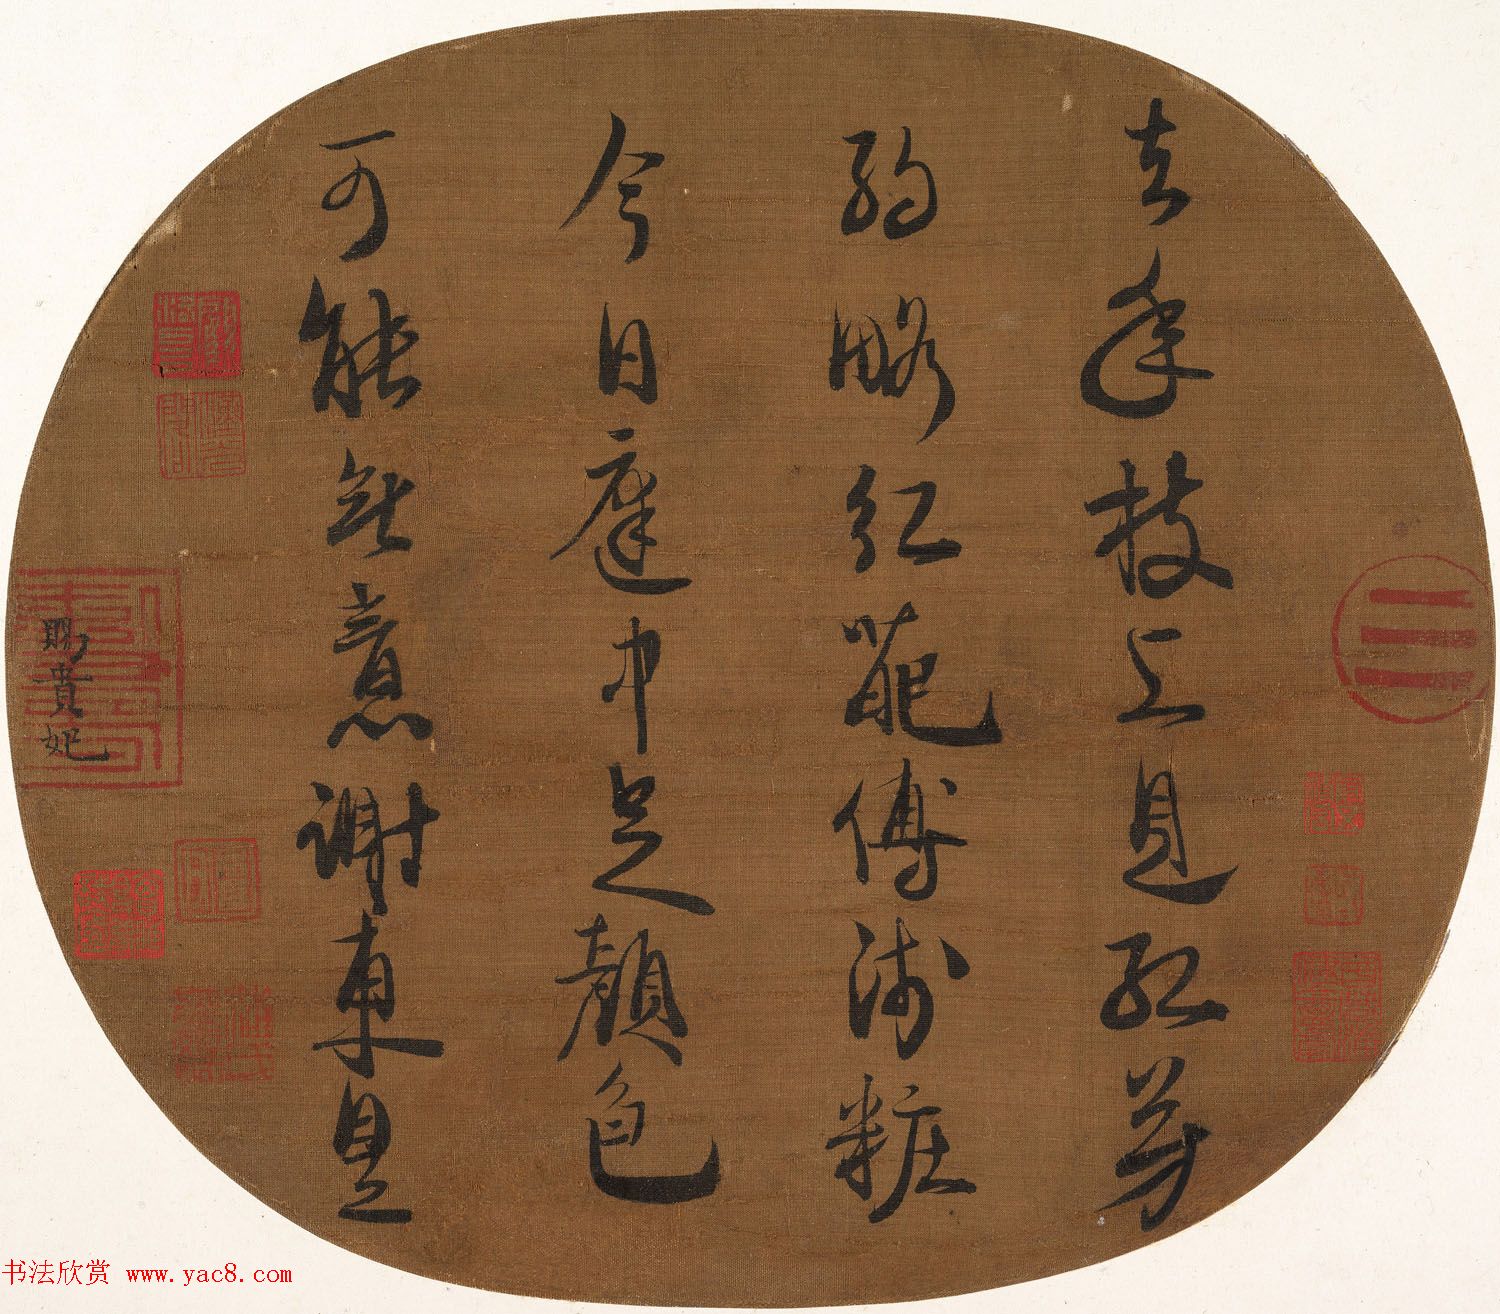 去年枝上見紅芳
約略紅葩傅淺粧
今日庭中足顏色
可能無意謝東皇
賜貴妃
书法欣赏 www.yac8.com